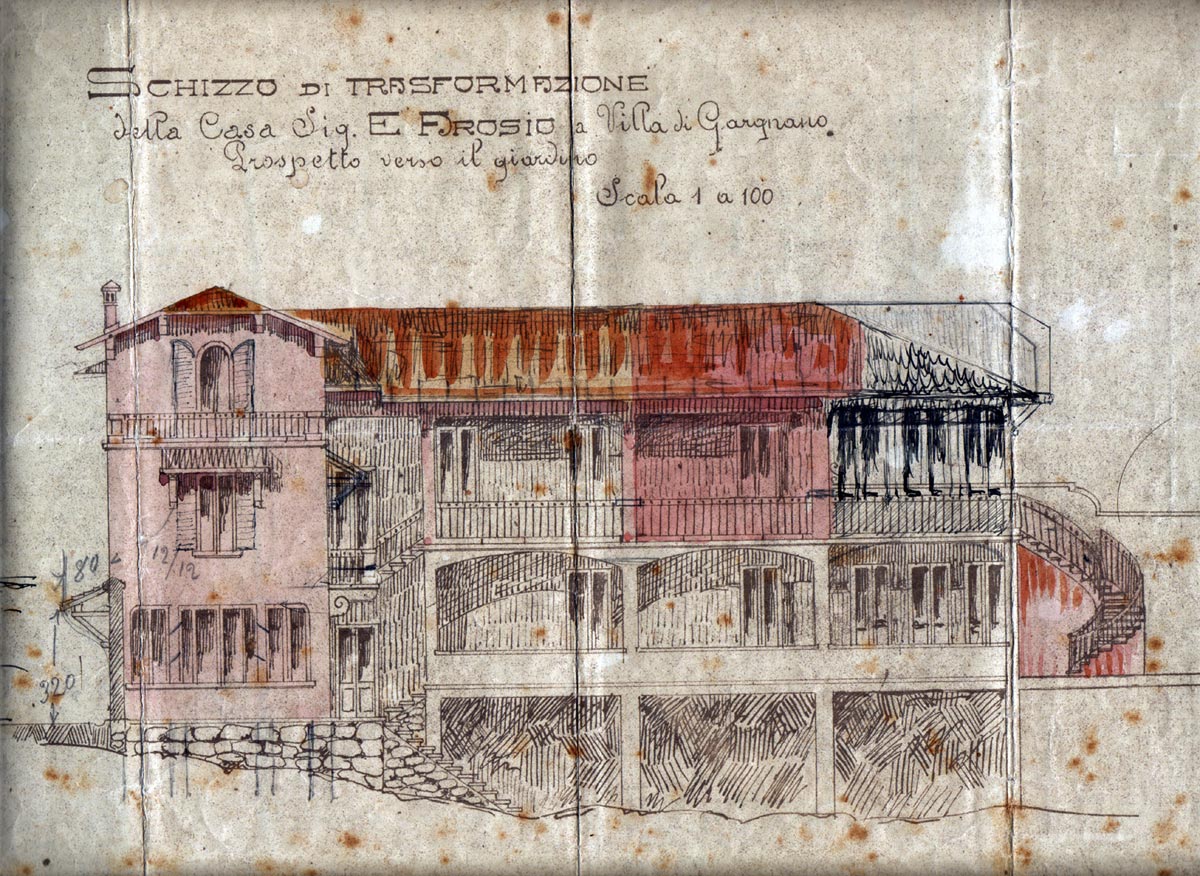 SCHIZZO DI TRASFORMAZIONE
della Casa Sig. E FROSIO a Villa di Gargnano
Prospetto verso il giardino
Scala 1 a 100
80
12/12
320